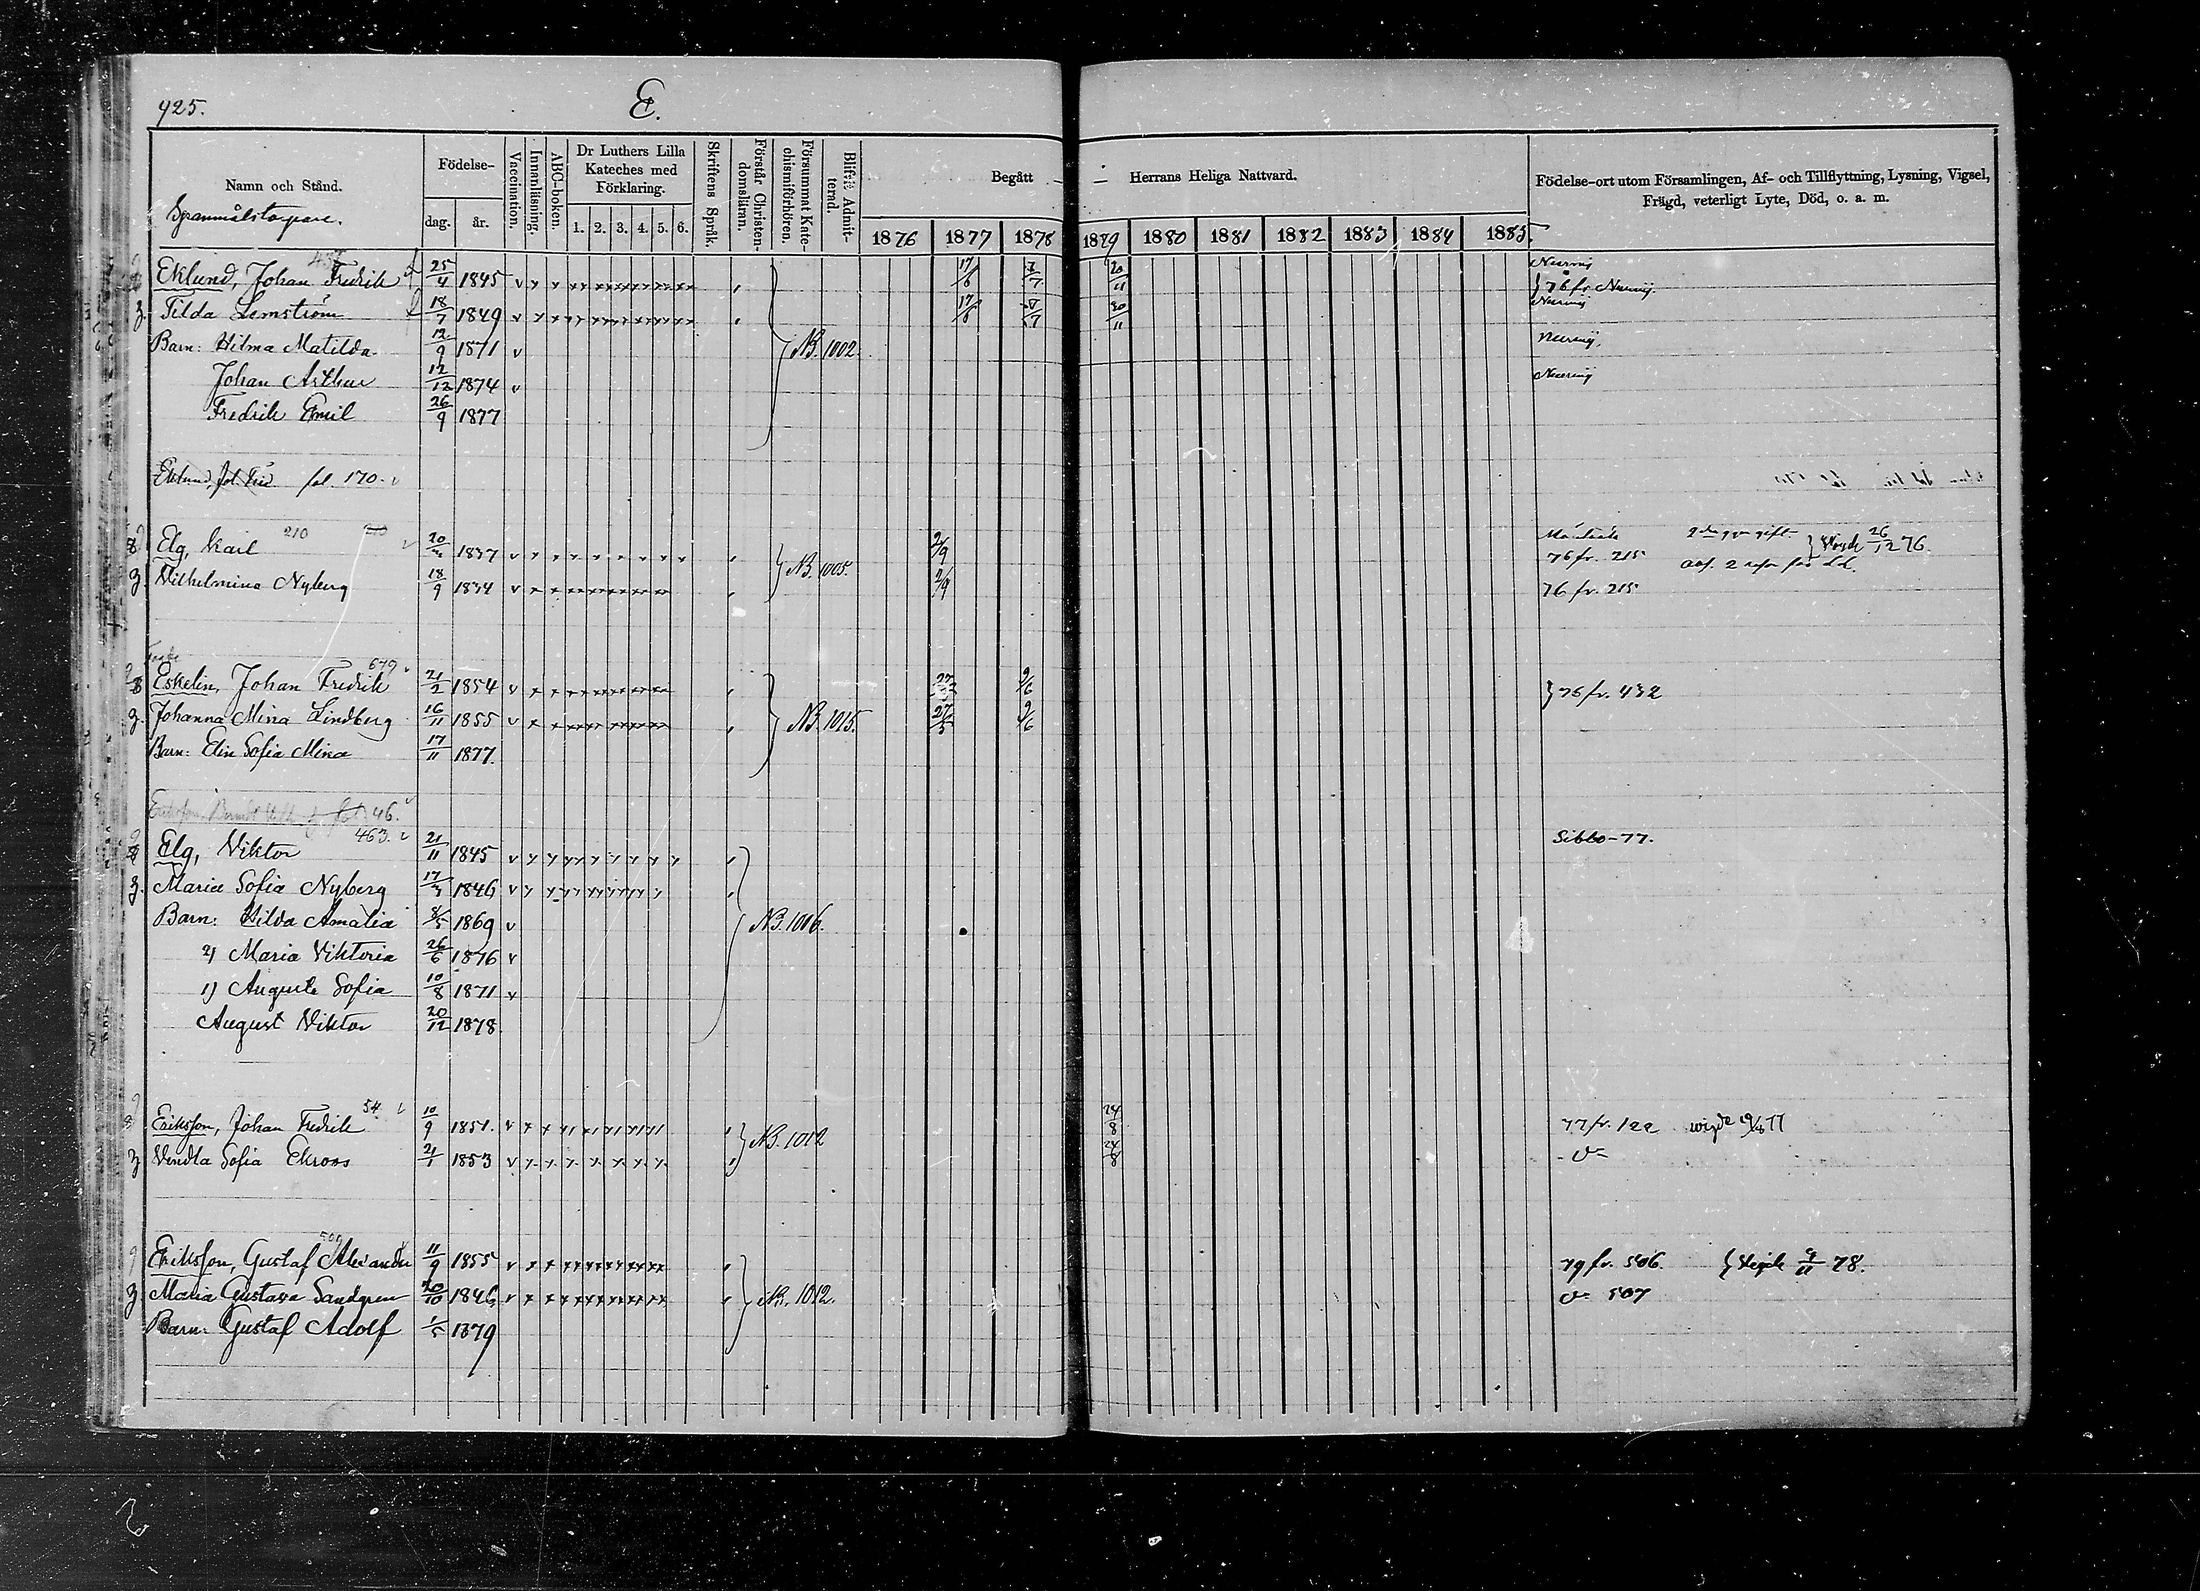 925.
E.
Namn och Stånd.
Födelse-
dag. år.
Vaccination.
Innanläsning.
ABC-boken.
Dr Luthers Lilla Kateches med Förklaring.
1. 2. 3. 4. 5. 6.
Skriftens Språk.
Förstår Christendomsläran.
Försummat Katechismiförhören.
Blifvit Admitterad.
Begått Herrans Heliga Nattvard.
1876 1877 1878 1879 1880 1881 1882 1883 1884 1885
Födelse-ort utom Församlingen, Af- och Tillflyttning, Lysning, Vigsel,
Frägd, veterligt Lyte, Död, o. a. m.
Eklund, Johan Fredrik 25/4 1845 17/6 20/11 76 fr.
Tilda Lemström 18/7 1849 17/6 20/11
Barn: Hilma Matilda 12/9 1871 NB. 1002.
Johan Arthur 12/12 1874
Fredrik Emil 26/9 1877
Eklund, fol. 170.
Elg, Karl 210 1837 2/9 76 fr. 215 26/12 76
Wilhelmina Nyberg 18/9 1834 NB. 1005. 2/9 76 fr. 215
Eskelin, Johan Fredrik 679 21/2 1854 2/6 76 fr. 432
Johanna Mina Lindberg 16/11 1855 NB. 1015. 27/5 2/6
Barn: Elin Sofia Mina 17/11 1877.
46.
Elg, Viktor 463. 21/11 1845 Sibbo-77.
Maria Sofia Nyberg 17/3 1846
Barn: Hilda Amalia 8/5 1869 NB. 1006.
2) Maria Viktoria 26/6 1876
1) Augusta Sofia 10/8 1871
August Viktor 20/12 1878
Eriksson, Johan Fredrik 54 10/9 1851. NB. 1012 24/8 77 fr. 122
Vendla Sofia Ekroos 21/1 1853 24/8
Eriksson, Gustaf Alexander 11/9 1855 79 fr. 506. 9/11 78.
Maria Gustava Sandgren 20/10 1846 NB. 1012. 507
Barn: Gustaf Adolf 1/5 1879